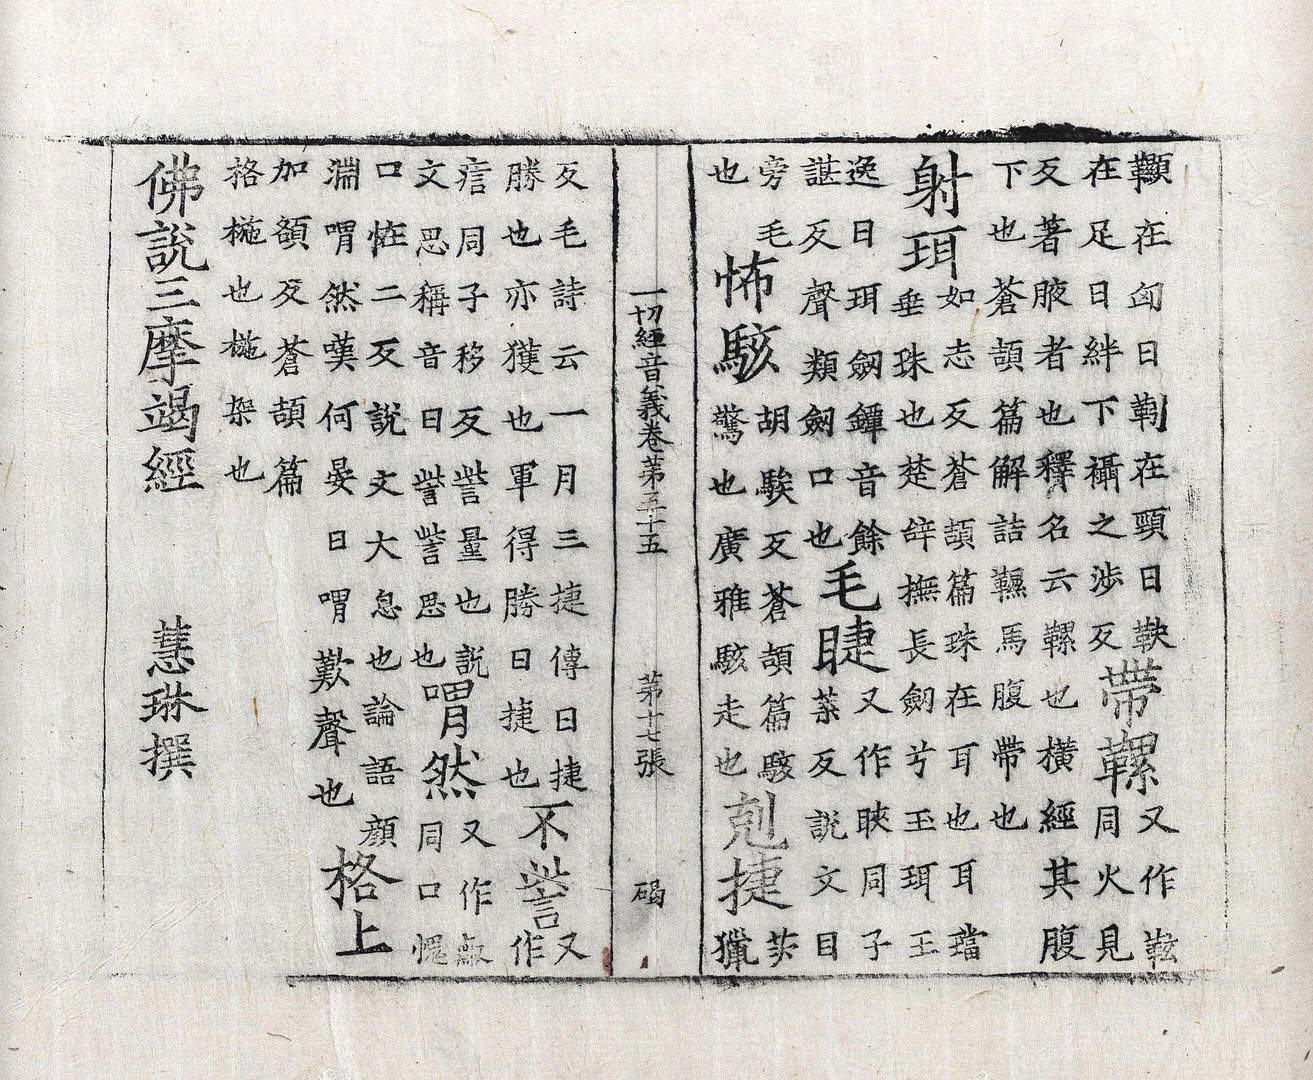 䪴在匈曰靷在頸曰鞅
在足曰絆下攝之涉反
帶鞪又作䩙
同火見
反著腋者也釋名云䩭也橫經其腹
下也蒼頡篇解詁䩭馬腹帶也
射珥
如志反蒼頡篇珠在耳也耳璫
垂珠也楚辝撫長劒兮玉珥王
逸曰珥劒鐔音餘
諶反聲類劒口也
毛睫
又作䀹同子
葉反說文目
旁毛
也
怖駭
胡駭反蒼頡篇駭
驚也廣雅駭走也
剋捷
茨
獵
反毛詩云一月三捷傳曰捷
勝也亦獲也軍得勝曰捷也
不訾
又
作
㾖同子移反訾量也說
文思稱音曰訾訾思也
喟然
又作
同口愧
口恠二反說文大息也論語顏
淵喟然嘆何晏曰喟歎聲也
格上
加頟反蒼頡篇
格㭟也㭟架也
佛說三摩竭經 慧琳撰
一切經音義卷第五十五 第十七張 碣